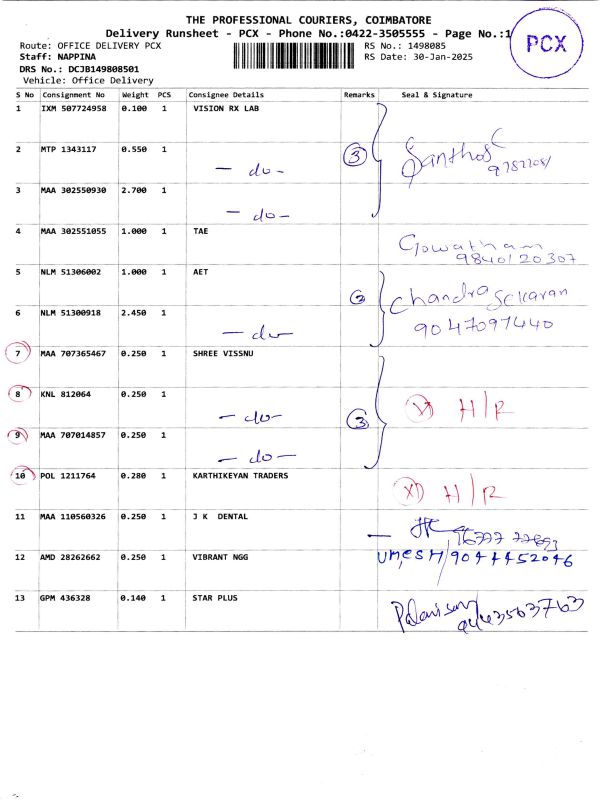 THE PROFESSIONAL COURIERS, COIMBATORE
Delivery Runsheet - PCX - Phone No.:0422-3505555 - Page No.:1
PCX
Route: OFFICE DELIVERY PCX
RS No.: 1498085
Staff: NAPPINA
RS Date: 30-Jan-2025
DRS No.: DCJB149808501
Vehicle: Office Delivery
S No Consignment No Weight PCS Consignee Details Remarks Seal & Signature
1 IXM 507724958 0.100 1 VISION RX LAB
2 MTP 1343117 0.550 1 - do - 3 Santhos
3 MAA 302550930 2.700 1 - do -
4 MAA 302551055 1.000 1 TAE Gowatham
9840120307
5 NLM 51306002 1.000 1 AET 2 Chandra Sekaran
6 NLM 51300918 2.450 1 - do - 9047097440
7 MAA 707365467 0.250 1 SHREE VISSNU
8 KNL 812064 0.250 1 - do - 3 H/R
9 MAA 707014857 0.250 1 - do -
10 POL 1211764 0.280 1 KARTHIKEYAN TRADERS H/R
11 MAA 110560326 0.250 1 J K DENTAL
12 AMD 28262662 0.250 1 VIBRANT NGG UMESH/9044452046
13 GPM 436328 0.140 1 STAR PLUS
9443563763